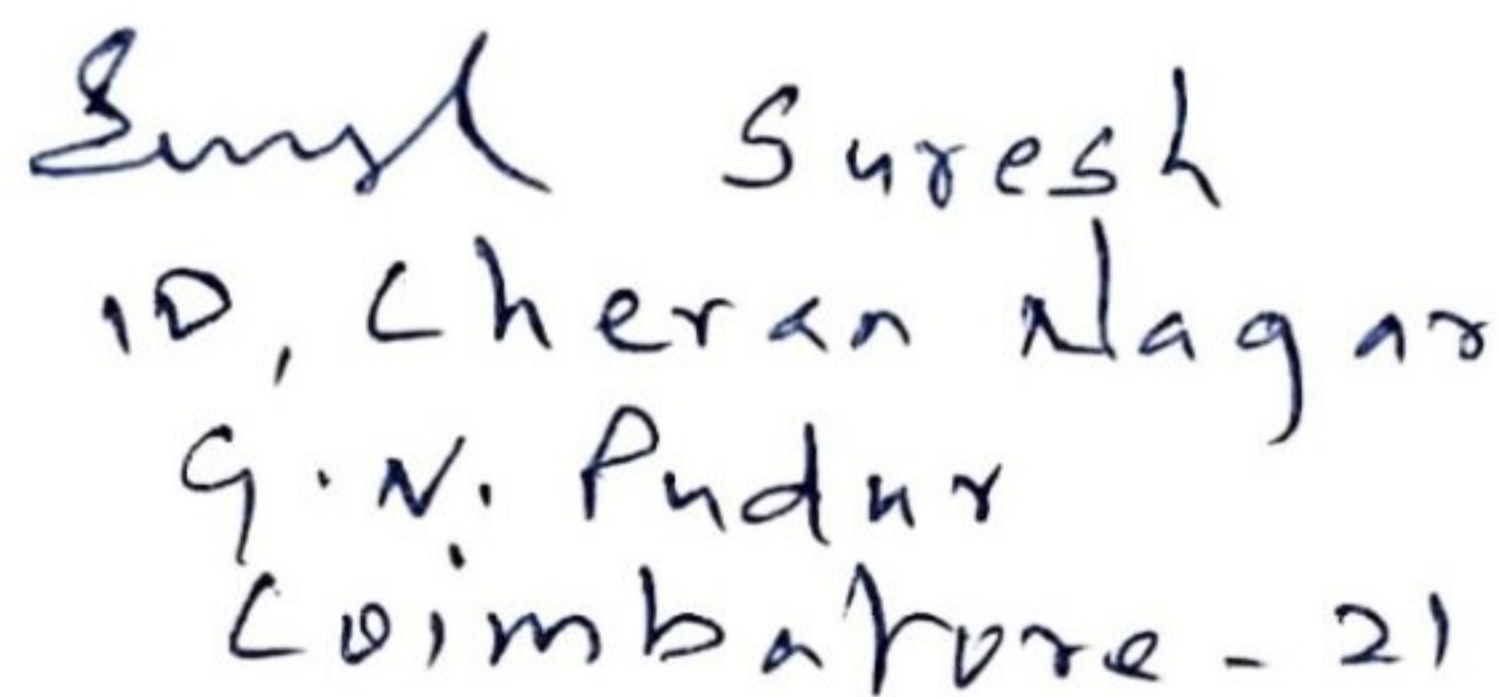 Suresh
10, Cheran Nagar
G.N. Pudur
Coimbatore - 21